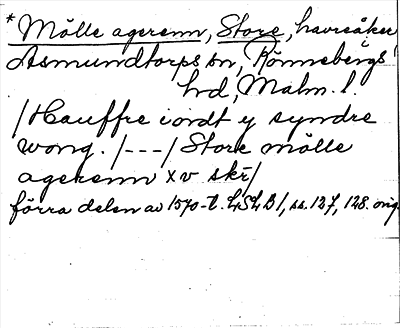 * Mölle agerenn, Store, havreåker
i
Asmundtorps sn, Rönnebergs
hrd, Malm. l.
/Hauffre iordt y syndre
wong. /---/ Store mölle
agerenn x v skr/
förra delen av 1570-t. LSLB/, ss. 127, 128. orig.